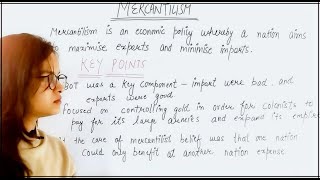 MERCANTILISM
Mercantilism is an economic policy whereby a nation aims
to maximise exports and minimise imports.
KEY POINTS
BOT was a key component - import were bad and
exports were good.
focused on controlling gold in order for colonists to
pay for its large armies and expand its empire
the core of mercantilist belief was that one nation
could only benefit at another nation expense